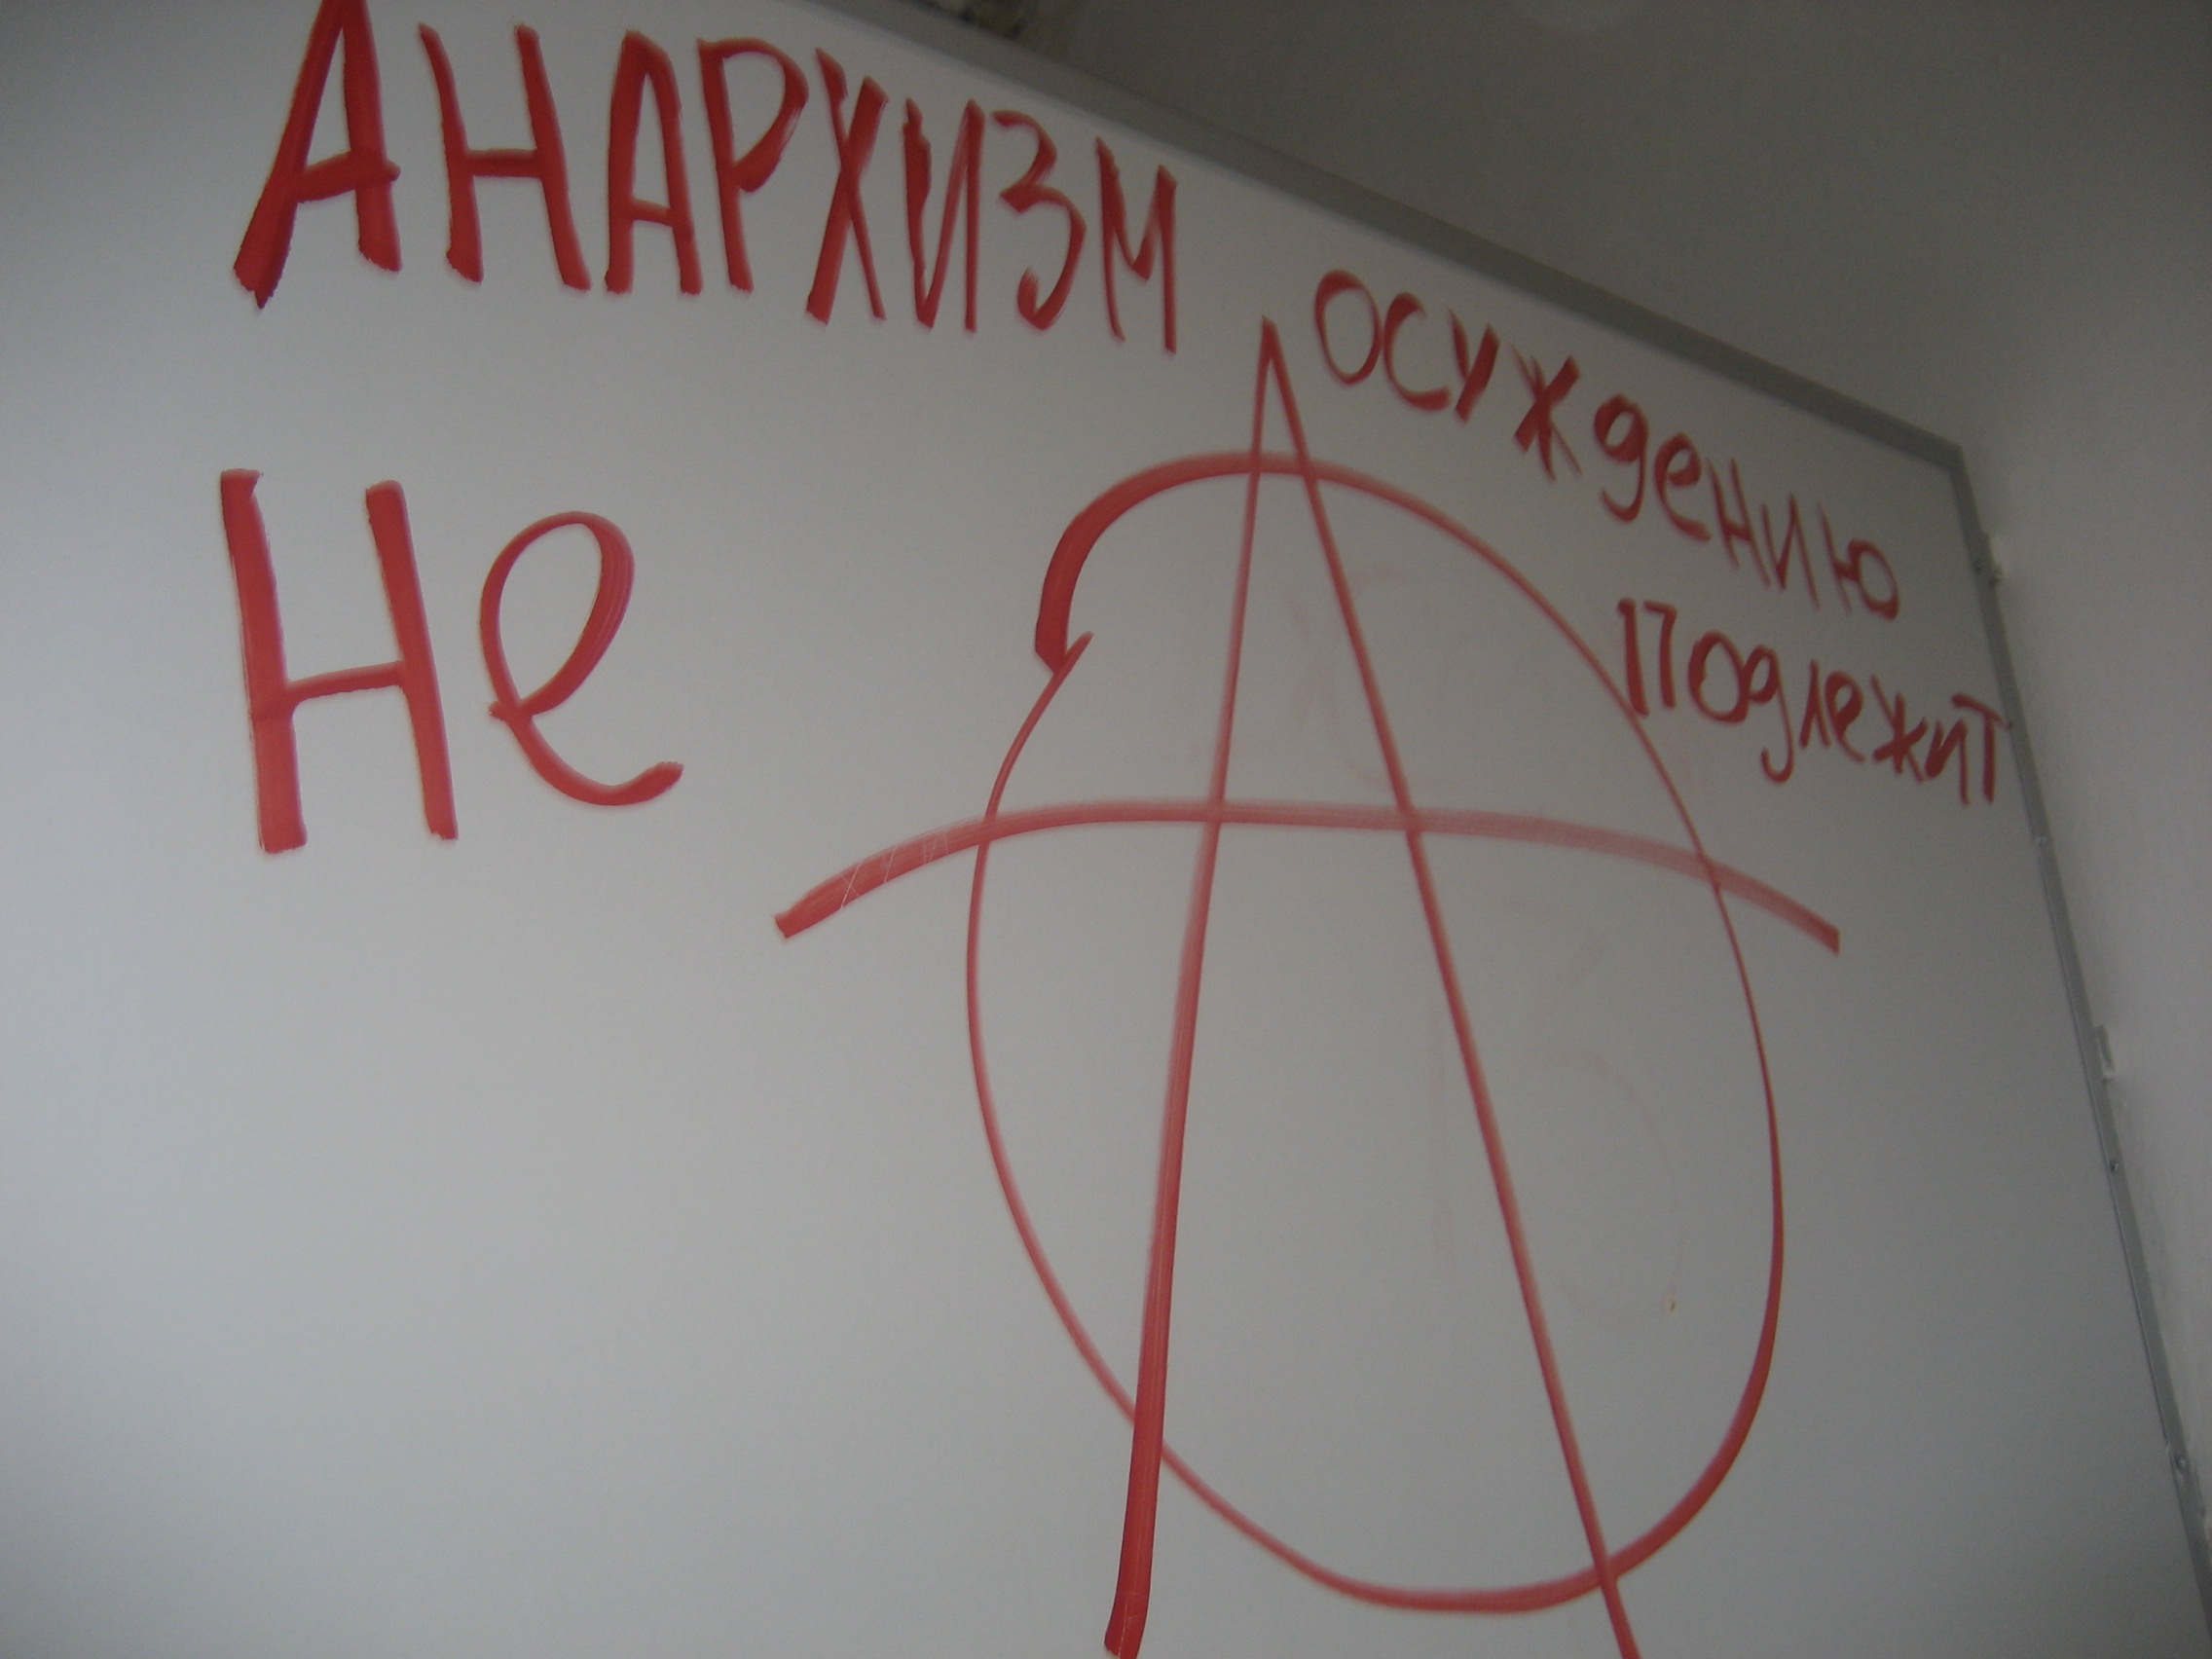 АНАРХИЗМ
Не
осуждению
подлежит